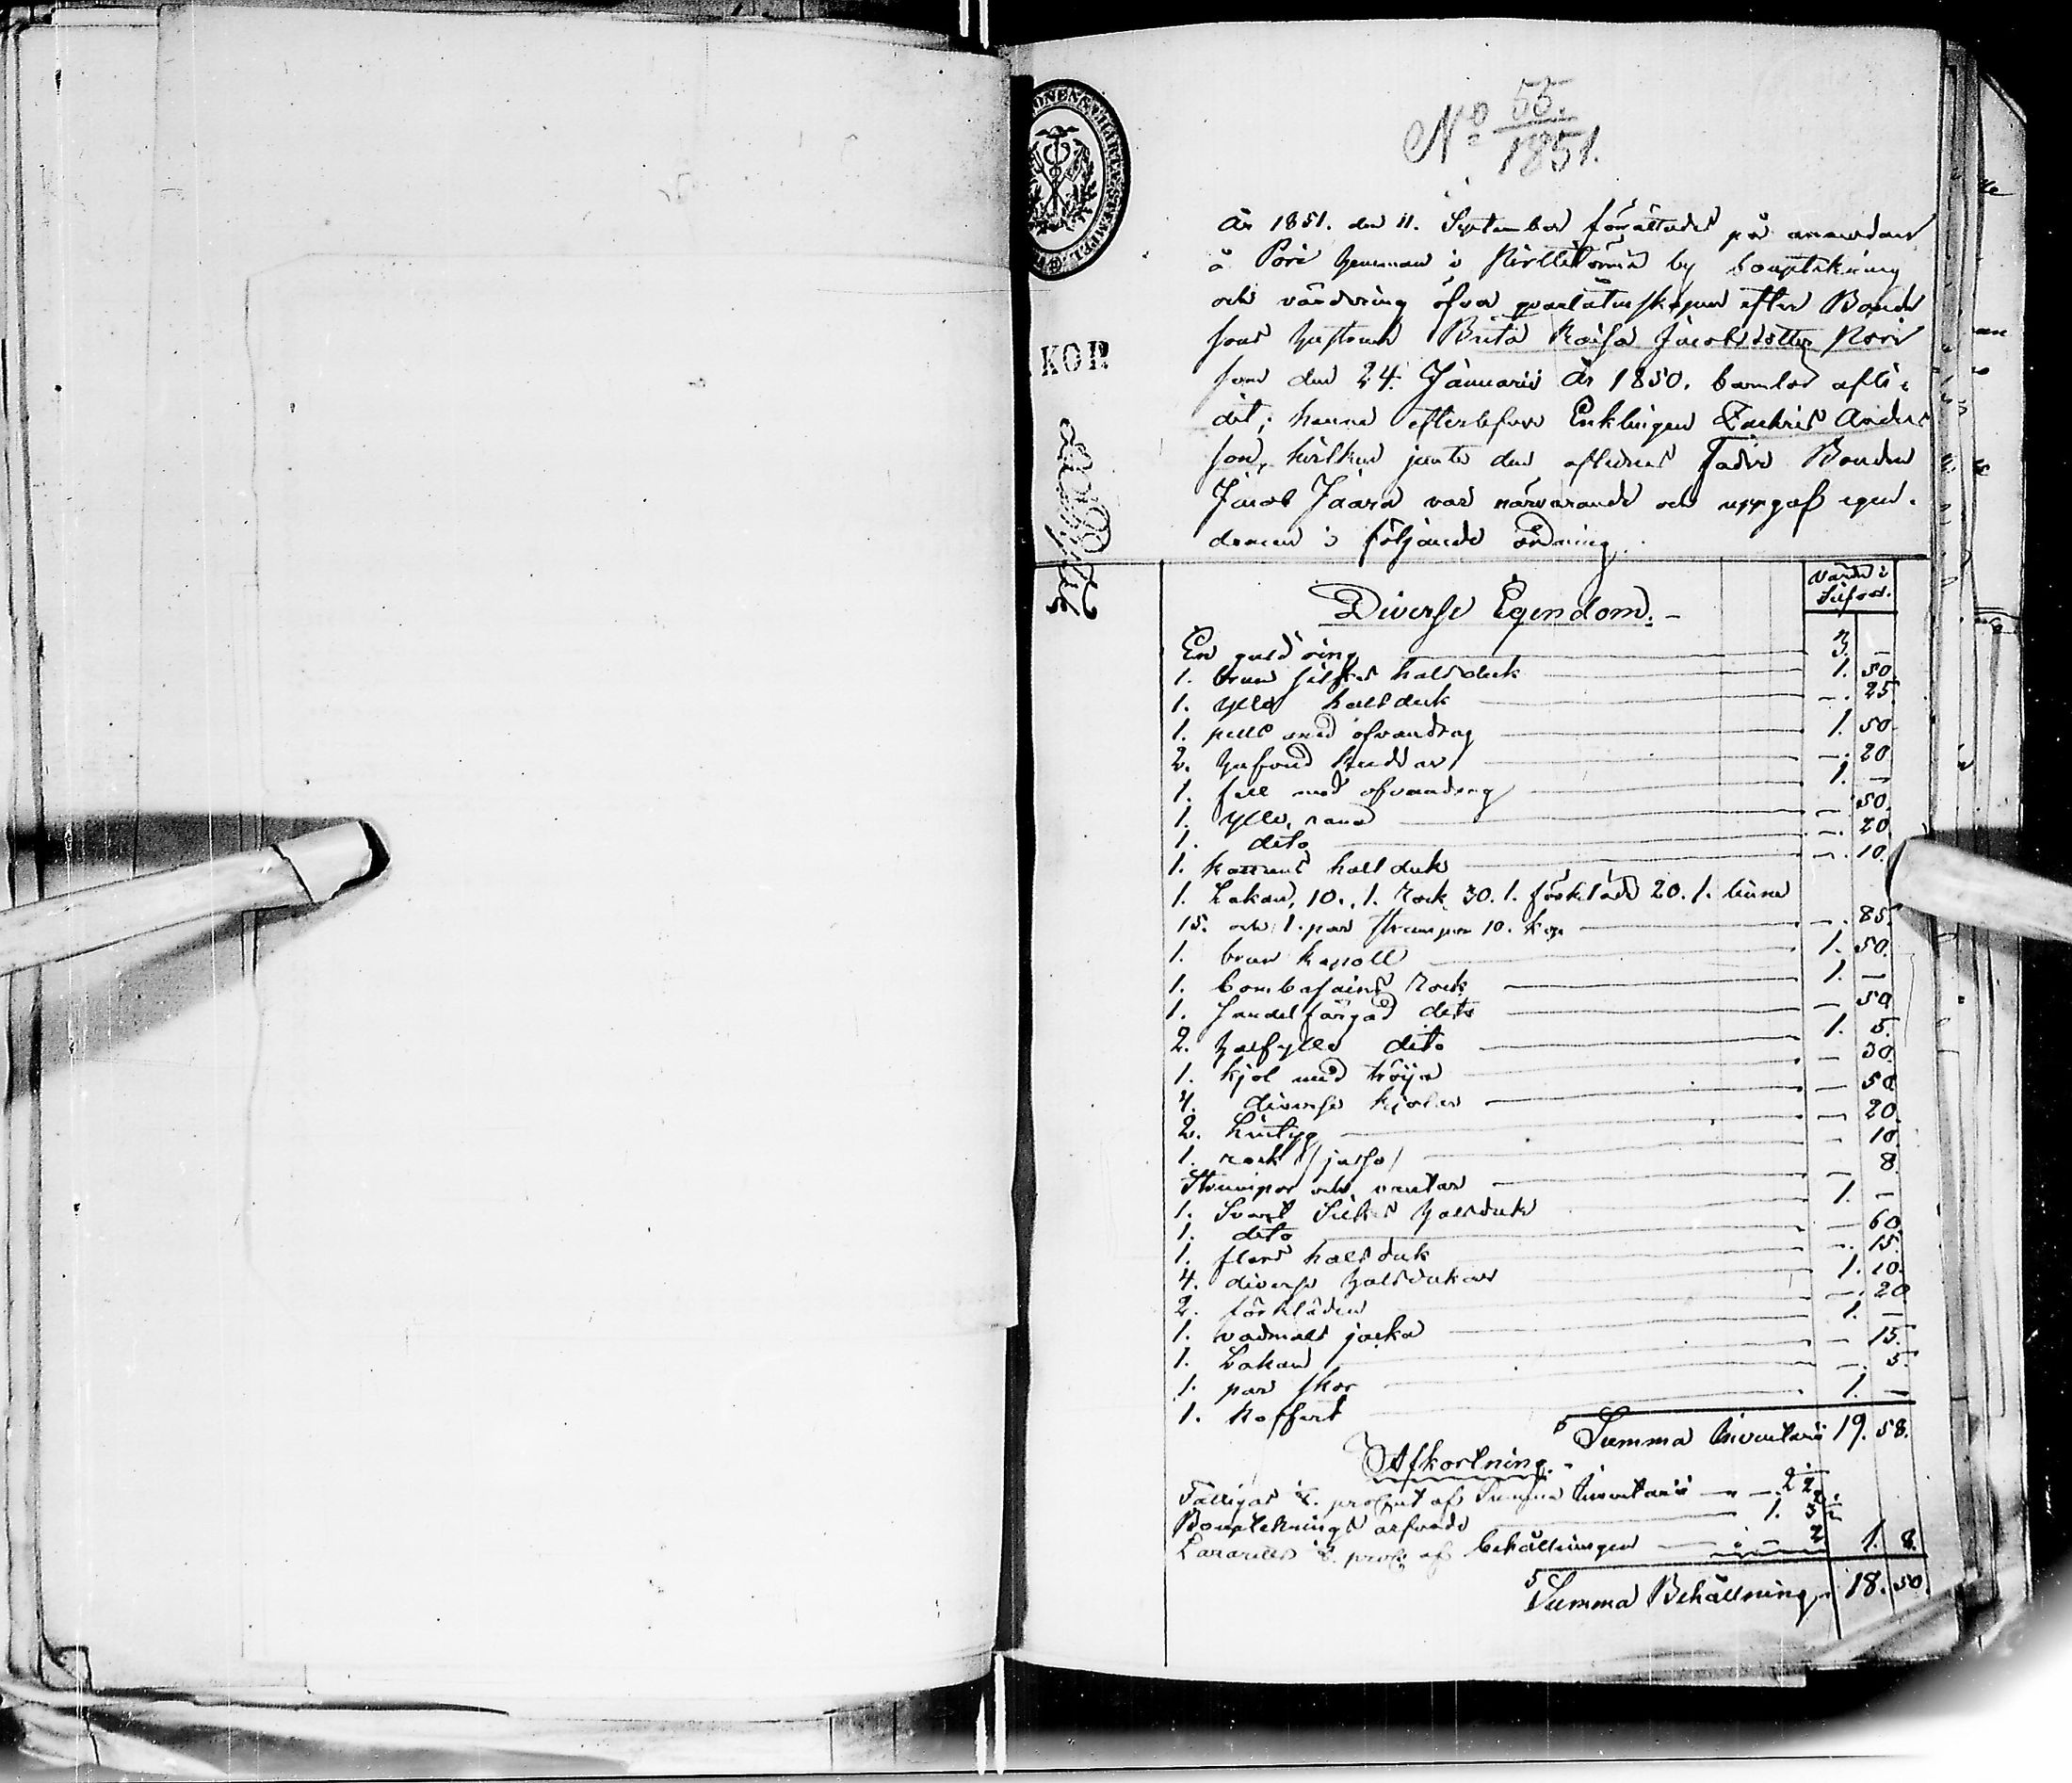 No 55.
1851.
KOP.
År 1851. den 11. September förättades på anmodan
å Pöri hemman i by bouptekning
och värdering öfver qvarlåtenskapen efter Bonde
sons hustrun Brita Kaisa Jacobsdotter
som den 24. Januarii År 1850. barnlös afli-
dit; henne efterlefver Enklingen Zachris Anders
son, hvilken jemte den aflidnes fader Bonden
Jacob Jaara var närvarande och uppgaf egen-
domen i följande ordning.
Värde i Silfver.
Diverse Egendom.-
En guld ring 3. -
1. brun silkes halsduk 1. 50.
1. ylle halsduk -. 25.
1. pells med öfvandrag 1. 50.
2. hufvud kuddar -. 20.
1. fell med ofvandrag 1. -
1. ylle rana - 50.
1. dito -. 20.
1. kattuns halsduk -. 10.
1. Lakan, 10., 1. Rock 30. 1. förkläde 20. 1. linne
15. och 1. par strumpor 10. kop -. 85.
1. brun kapott 1. 50.
1. bombasains Rock 1. -
1. sandelfärgad dito - 50.
2. halfylle dito 1. 5.
1. kjol med tröija - 30.
4. diverse kjolar - 50.
2. lintyg - 20.
1. rock - 10.
Strumpor och vantar - 8.
1. Svart Silkes halsduk 1. -
1. dito - 60.
1. flors halsduk -. 15.
4. diverse halsdukar 1. 10.
2. förkläden -. 20
1. vadmals jacka 1. -
1. Lakan - 15.
1. par skor -. 5.
1. koffert 1. -
Summa Inventarii 19. 58.
Afkortning.-
Fattigas procent af Summa Inventarii
Boupteknings arfvode
behållningen 1. 8.
Summa Behållning 18. 50.